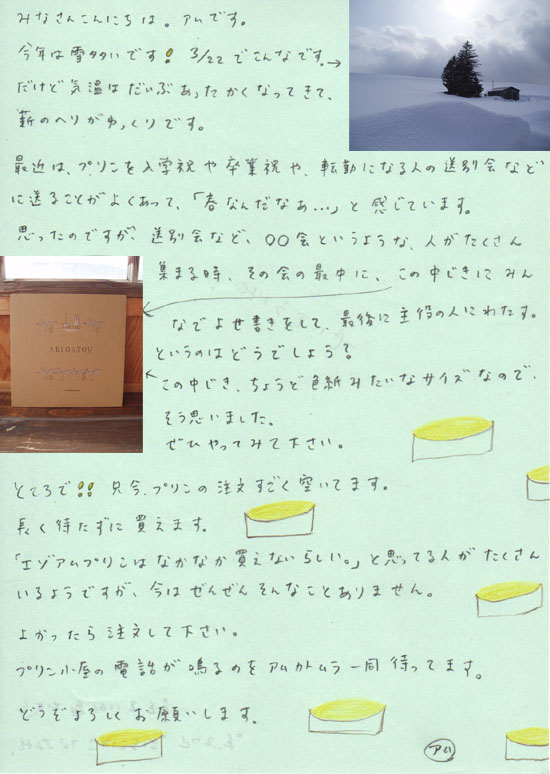 みなさんこんにちは。アムです。
今年は雪多いです! 3/22でこんなです。→
だけど気温はだいぶあったかくなってきて、
薪のへりがゆっくりです。
最近は、プリンを入学祝や卒業祝や、転勤になる人の送別会などに
送ることがよくあって、「春なんだなあ…」と感じています。
思ったのですが、送別会など、〇〇会というような、人がたくさん
集まる時、その会の最中に、この中じきにみん
なでよせ書きをして、最後に主役の人にわたす。
というのはどうでしょう?
この中じき、ちょうど色紙みたいなサイズなので、
そう思いました。
ぜひやってみて下さい。
ARIGATOU
ところで!! 只今、プリンの注文すごく空いてます。
長く待たずに買えます。
「エゾアムプリンはなかなか買えないらしい。」と思ってる人がたくさん
いるようですが、今はぜんぜんそんなことありません。
よかったら注文して下さい。
プリン小屋の電話が鳴るのをアムカトムラ一同待ってます。
どうぞよろしくお願いします。
アム